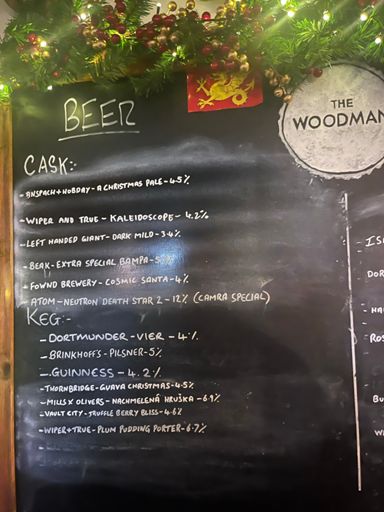 BEER
THE
WOODMAN
CASK:-
- ANSPACH + HOBDAY - A CHRISTMAS PALE - 4.5%
- WIPER AND TRUE - KALEIDOSCOPE - 4.2%
- LEFT HANDED GIANT - DARK MILD - 3.4%
- BEAK - EXTRA SPECIAL BAMPA - 5%
- FOWND BREWERY - COSMIC SANTA - 4%
- ATOM - NEUTRON DEATH STAR 2 - 12% (CAMRA SPECIAL)
KEG:-
- DORTMUNDER - VIER - 4%
- BRINKHOFF'S - PILSNER - 5%
- GUINNESS - 4.2%
- THORNBRIDGE - GUAVA CHRISTMAS - 4.5%
- MILLS X OLIVERS - NACHMELENÁ HRUŠKA - 6.9%
- VAULT CITY - TRUFFLE BERRY BLISS - 4.6%
- WIPER + TRUE - PLUM PUDDING PORTER - 6.7%